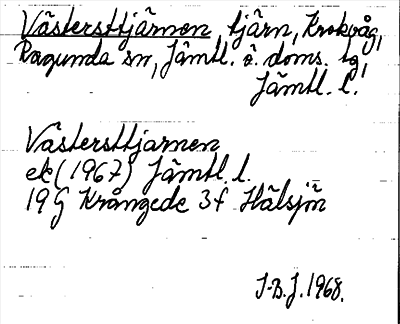 Västersttjärnen, tjärn, Krokvåg,
Ragunda sn, Jämtl. ö. doms. tg,
Jämtl. l.
Västersttjärnen
ek (1967) Jämtl. l.
19 G Krångede 3f Hälsjön
J.B.J. 1968.